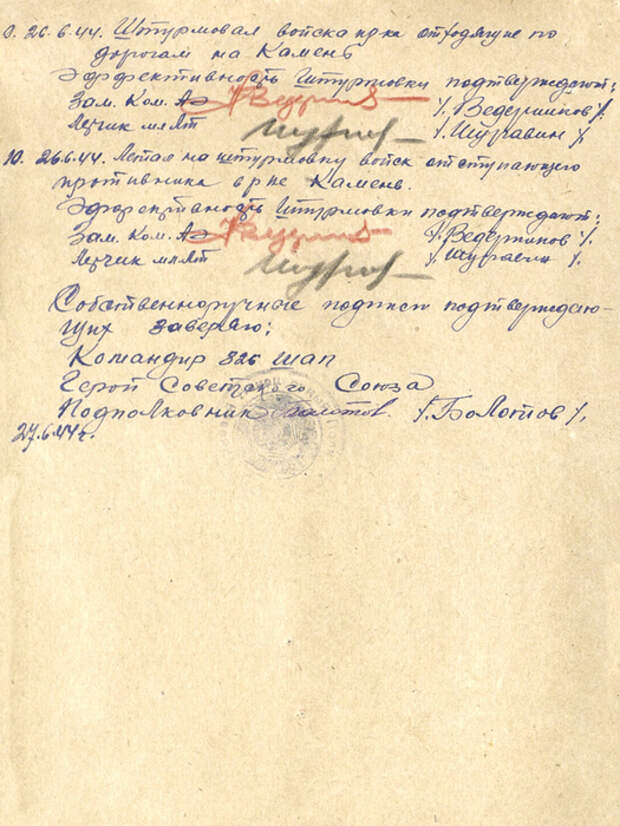 26.6.44. Штурмовал войска пр-ка отходящие по
дорогам на Камень
Эффективность Штурмовки подтверждают:
Зам. Ком. АЭ /. Ведерников /.
Летчик мл лт /. Шуравин /.
10. 26.6.44. Летал на штурмовку войск отступающего
противника в р-не Камень.
Эффективность Штурмовки подтверждают:
Зам. Ком. АЭ /. Ведерников /.
Летчик мл лт /. Шуравин /.
Собственноручные подписи подтверждаю-
щих заверяю:
Командир 826 шап
Герой Советского Союза
Подполковник /. Болотов /.
27.6.44г.